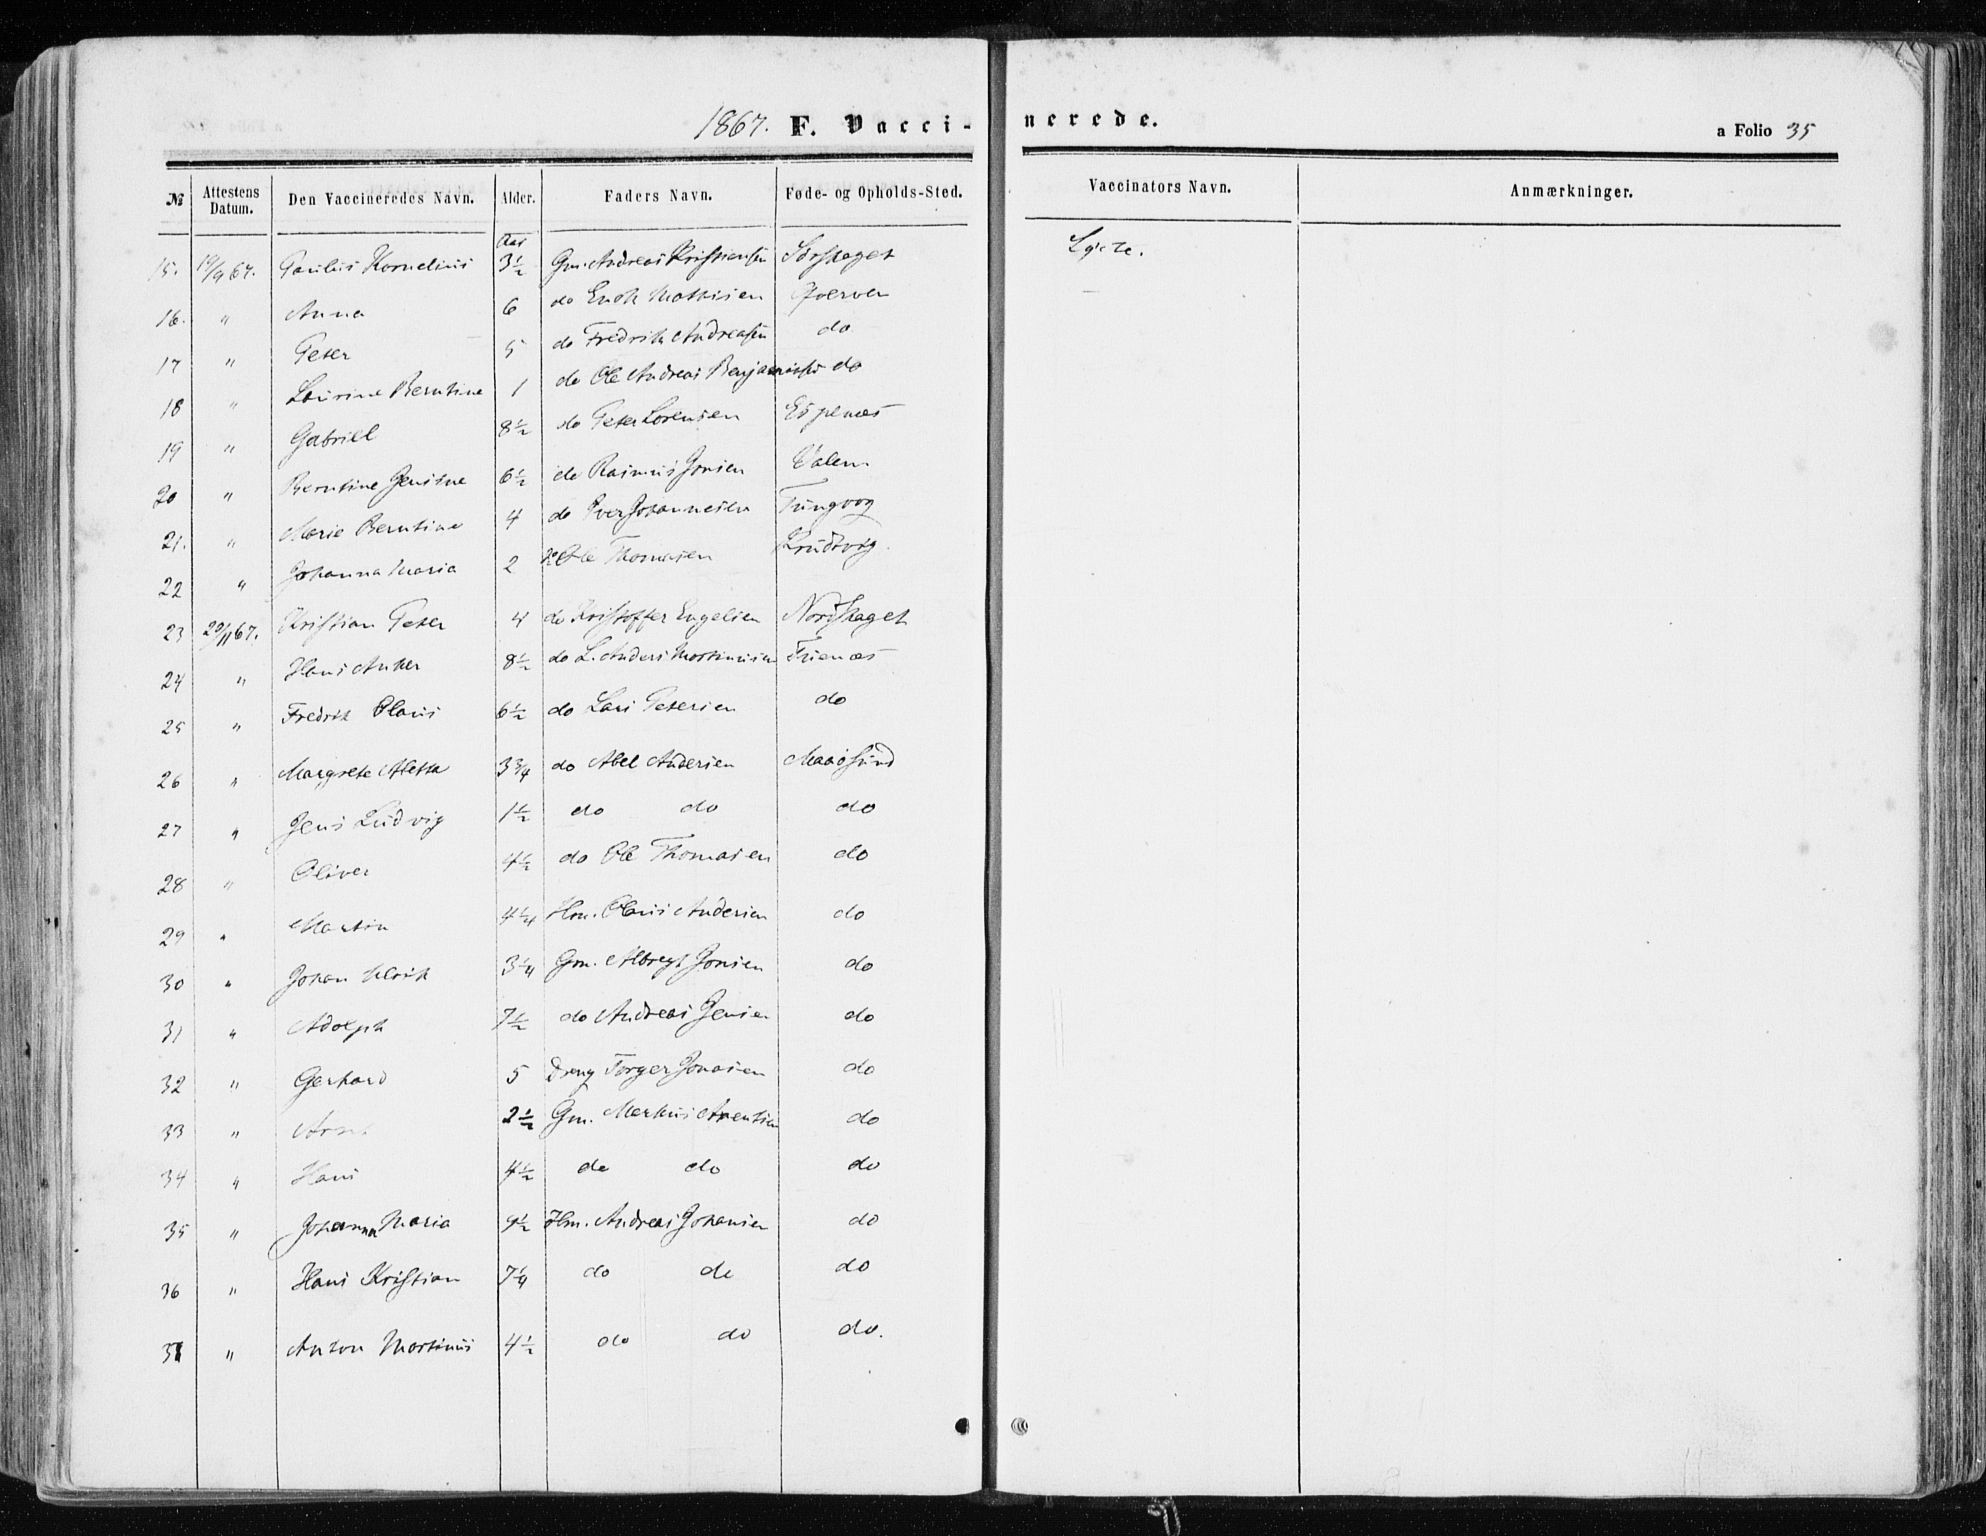 1867. F. Vaccinerede. a Folio 35
№ Attestens Datum. Den Vaccineredes Navn. Alder. Faders Navn. Føde- og Opholds-Sted. Vaccinators Navn. Anmærkninger.
Aar
15. 19/9 67. Paulus Kornelius 3½ Gm. Andreas Kristiansen Sørskaget
16. " Anna 6 do Enok Mathisen Qverven
17 " Peter 5 do Fredrik Andreasen do
18 " Laurine Berntine 1 do Ole Andreas Benjaminsen do
19 " Gabriel 8½ do Peter Lorensen Espenæs
20 " Berntine Jensine 6½ do Rasmus Jonsen Valen
21. " Marie Berntine 4 do Iver Johannesen Tungvog
22 " Johanna Maria 2 Ole Thomasen
23 29/11 67. Kristian Peter 4 do Kristoffer Engelsen Nordskaget
24 " Hans Anker 8½ do L. Anders Mortinusen
25 " Fredrik Olaus 6½ do Lars Petersen do
26 " Margrete Aletta 3¾ do Abel Andersen Maaøsund
27 " Jens Ludvig 1½ do do do
28 " Oliver 4½ do Ole Thomasen do
29 " Martin 4¼ Hm. Olaus Andersen do
30 " Johan Ulrik 3¼ Gm. Albregt Jonsen do
31 " Adolph 7½ do Andreas Jensen do
32 " Gerhard 5 Dreng Torger Jonasen do
33 " 2½ Gm. Markus Arentsen do
34 " Hans 4½ do do do
35 " Johanna Maria 9½ Hm. Andreas Johansen do
36 " Hans Kristian 7¼ do do do
37 " Anton Mortinus 4½ do do do.